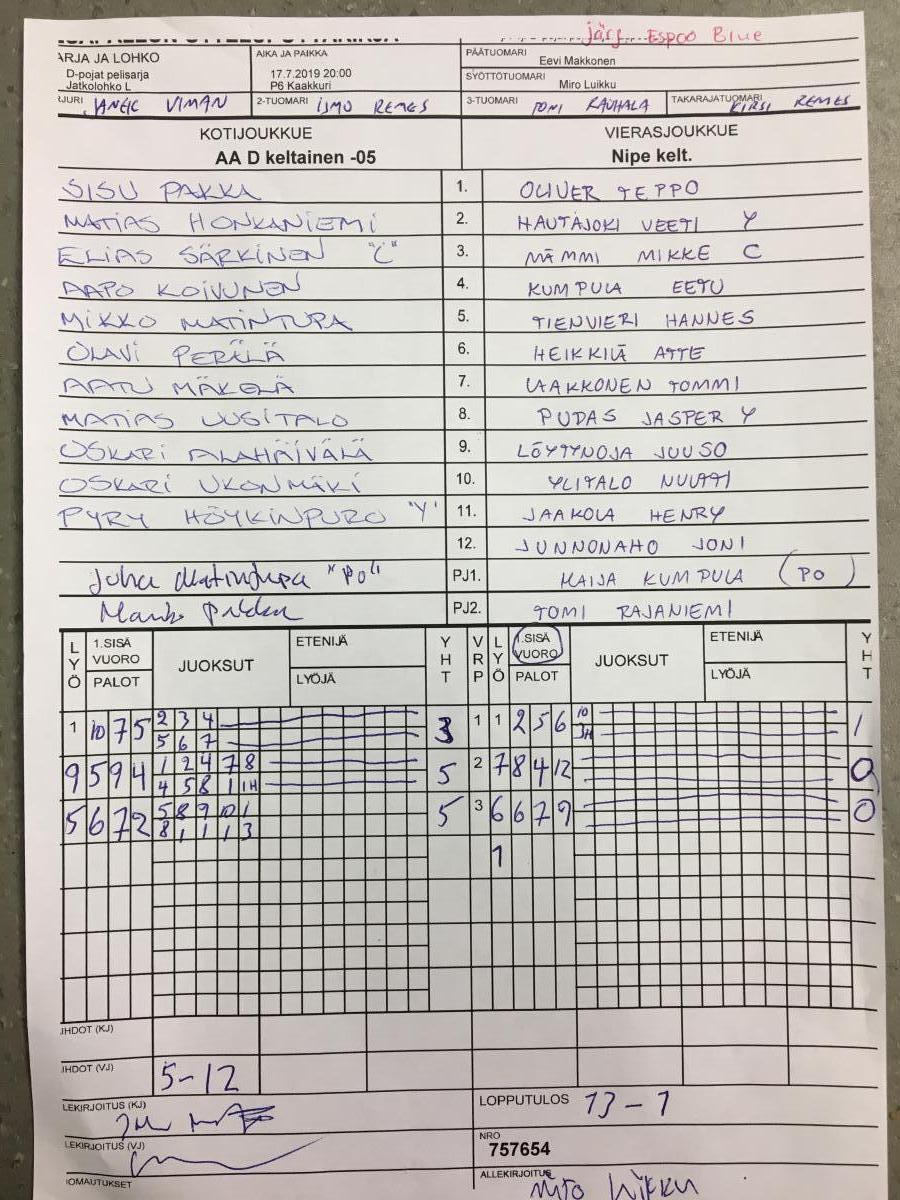 järj. Espoo Blue
ARJA JA LOHKO
D-pojat pelisarja
Jatkolohko L
AIKA JA PAIKKA
17.7.2019 20:00
P6 Kaakkuri
PÄÄTUOMARI
Eevi Makkonen
SYÖTTÖTUOMARI
Miro Luikku
RJURI VIMAN
2-TUOMARI ISMO REMES
3-TUOMARI TONI RAUHALA
TAKARAJATUOMARI KIRSI REMES
KOTIJOUKKUE VIERASJOUKKUE
AA D keltainen -05 Nipe kelt.
SISU PAKKA 1. OLIVER TEPPO
MATIAS HONKANIEMI 2. HAUTAJOKI VEETI Y
ELIAS SÄRKINEN "C" 3. MÄMMI MIKKE C
AAPO KOIVUNEN 4. KUMPULA EETU
MIKKO MATINTUPA 5. TIENVIERI HANNES
OLAVI PERÄLÄ 6. HEIKKILÄ ATTE
AATU MÄKELÄ 7. LAAKKONEN TOMMI
MATIAS UUSITALO 8. PUDAS JASPER Y
OSKARI ALAHÄIVÄLÄ 9. LÖYTYNOJA JUUSO
OSKARI UKONMÄKI 10. YLITALO NUUTTI
PYRY HÖYKINPURO "Y" 11. JAAKOLA HENRY
12. JUNNONAHO JONI
Juha Matintupa "PO" PJ1. MAIJA KUMPULA (PO)
PJ2. TOMI RAJANIEMI
LYÖ 1.SISÄ VUORO PALOT JUOKSUT ETENIJÄ LYÖJÄ YHT VRP LYÖ 1.SISÄ VUORO PALOT JUOKSUT ETENIJÄ LYÖJÄ YHT
1 10 7 5 2 3 4 3 1 1 2 5 6 10 1
5 6 7 3H
9 5 9 4 1 2 4 7 8 5 2 7 8 4 12 0
4 5 8 1 1H
5 6 7 2 5 8 9 10 1 5 3 6 6 7 9 0
8 1 1 1 3
1
JHDOT (KJ)
JHDOT (VJ) 5-12
LEKIRJOITUS (KJ)
LOPPUTULOS 13-1
LEKIRJOITUS (VJ)
NRO
757654
IOMAUTUKSET
ALLEKIRJOITUS Miro Luikku